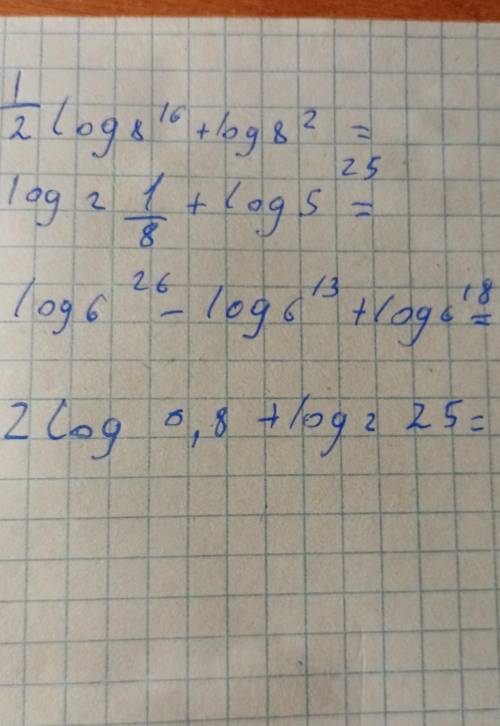 1/2 log₈ 16 + log₈ 2 =
log₂ 1/8 + log₅ 25 =
log₆ 26 - log₆ 13 + log₆ 18 =
2 log 0,8 + log₂ 25 =